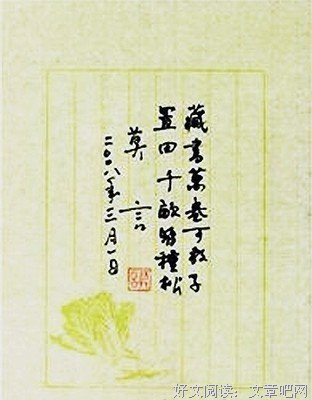 藏書萬卷可教子
置田千畝皆種松
莫言
二〇〇八年三月一日
好文阅读：文章吧网